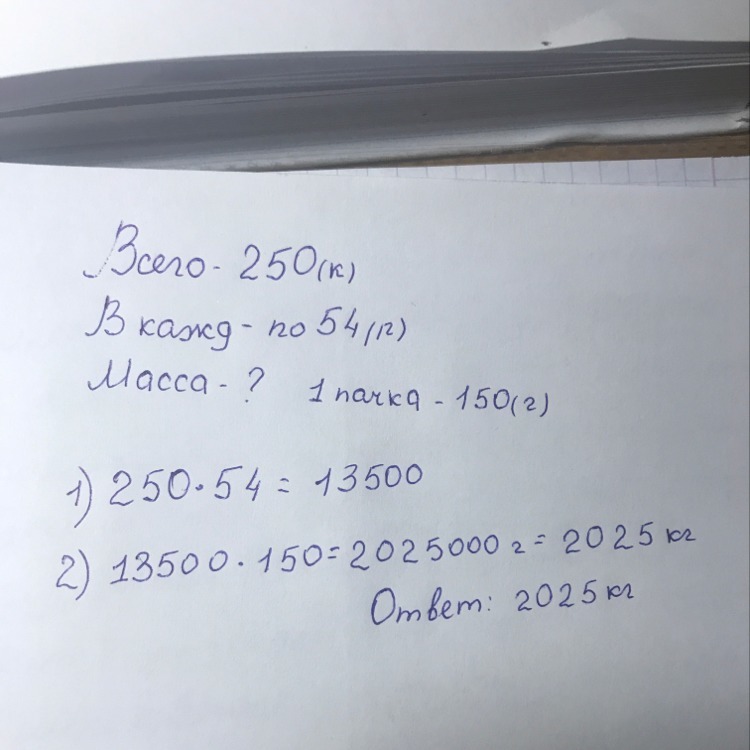 Всего - 250 (к)
В кажд - по 54 (п)
Масса - ? 1 пачка - 150 (г)
1) 250 · 54 = 13500
2) 13500 · 150 = 2025000 г = 2025 кг
Ответ: 2025 кг